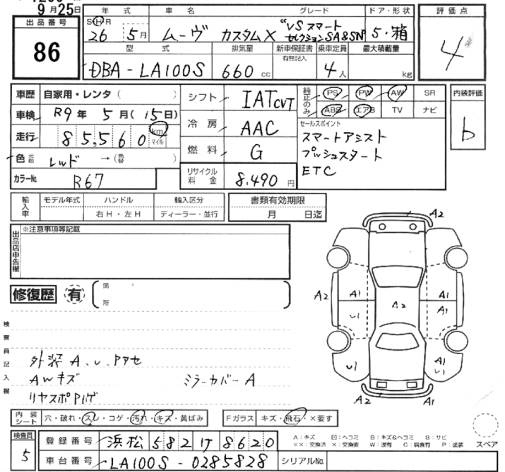 9月25日
出品番号 年式 車名 グレード ドア・形状 評価点
86 S H 26 5月 ムーヴ カスタムX "VSスマートセレクションSA8SN 5・箱 4
型式 排気量 新車保証書 有無記入 乗車定員 最大積載量
DBA-LA100S 660cc 4人 kg
車歴 自家用・レンタ( ) シフト IAT CVT 純正のみ PS PW AW SR 内装評価
車検 R9年5月(15日) ABS エアB TV ナビ b
走行 85,560 km マイル 冷房 AAC セールスポイント
色 元色 レッド → 色替( ) 燃料 G スマートアシスト
プッシュスタート
カラーNo. R67 リサイクル料金 8,490円 ETC
輸入車 モデル年式 ハンドル 輸入区分 書類有効期限
右H・左H ディーラー・並行 月 日迄
出品店申告欄 ※注意事項等記載
修復歴 有 箇所
A2
A2 A1 A1 A2
U1 A1
U1 U1
A2
検査員記入欄
外装 A、U、Pアセ
AWキズ ミラーカバーA
リヤスポPハゲ
内装シート 穴・破れ・スレ・コゲ・汚れ・キズ・黄ばみ Fガラス キズ・飛石・×要す
検査員 5 登録番号 浜松 582 り 8620
車台番号 LA100S-0285828 シリアルNo.
A:キズ E:ヘコミ B:キズ&ヘコミ S:サビ
スペア